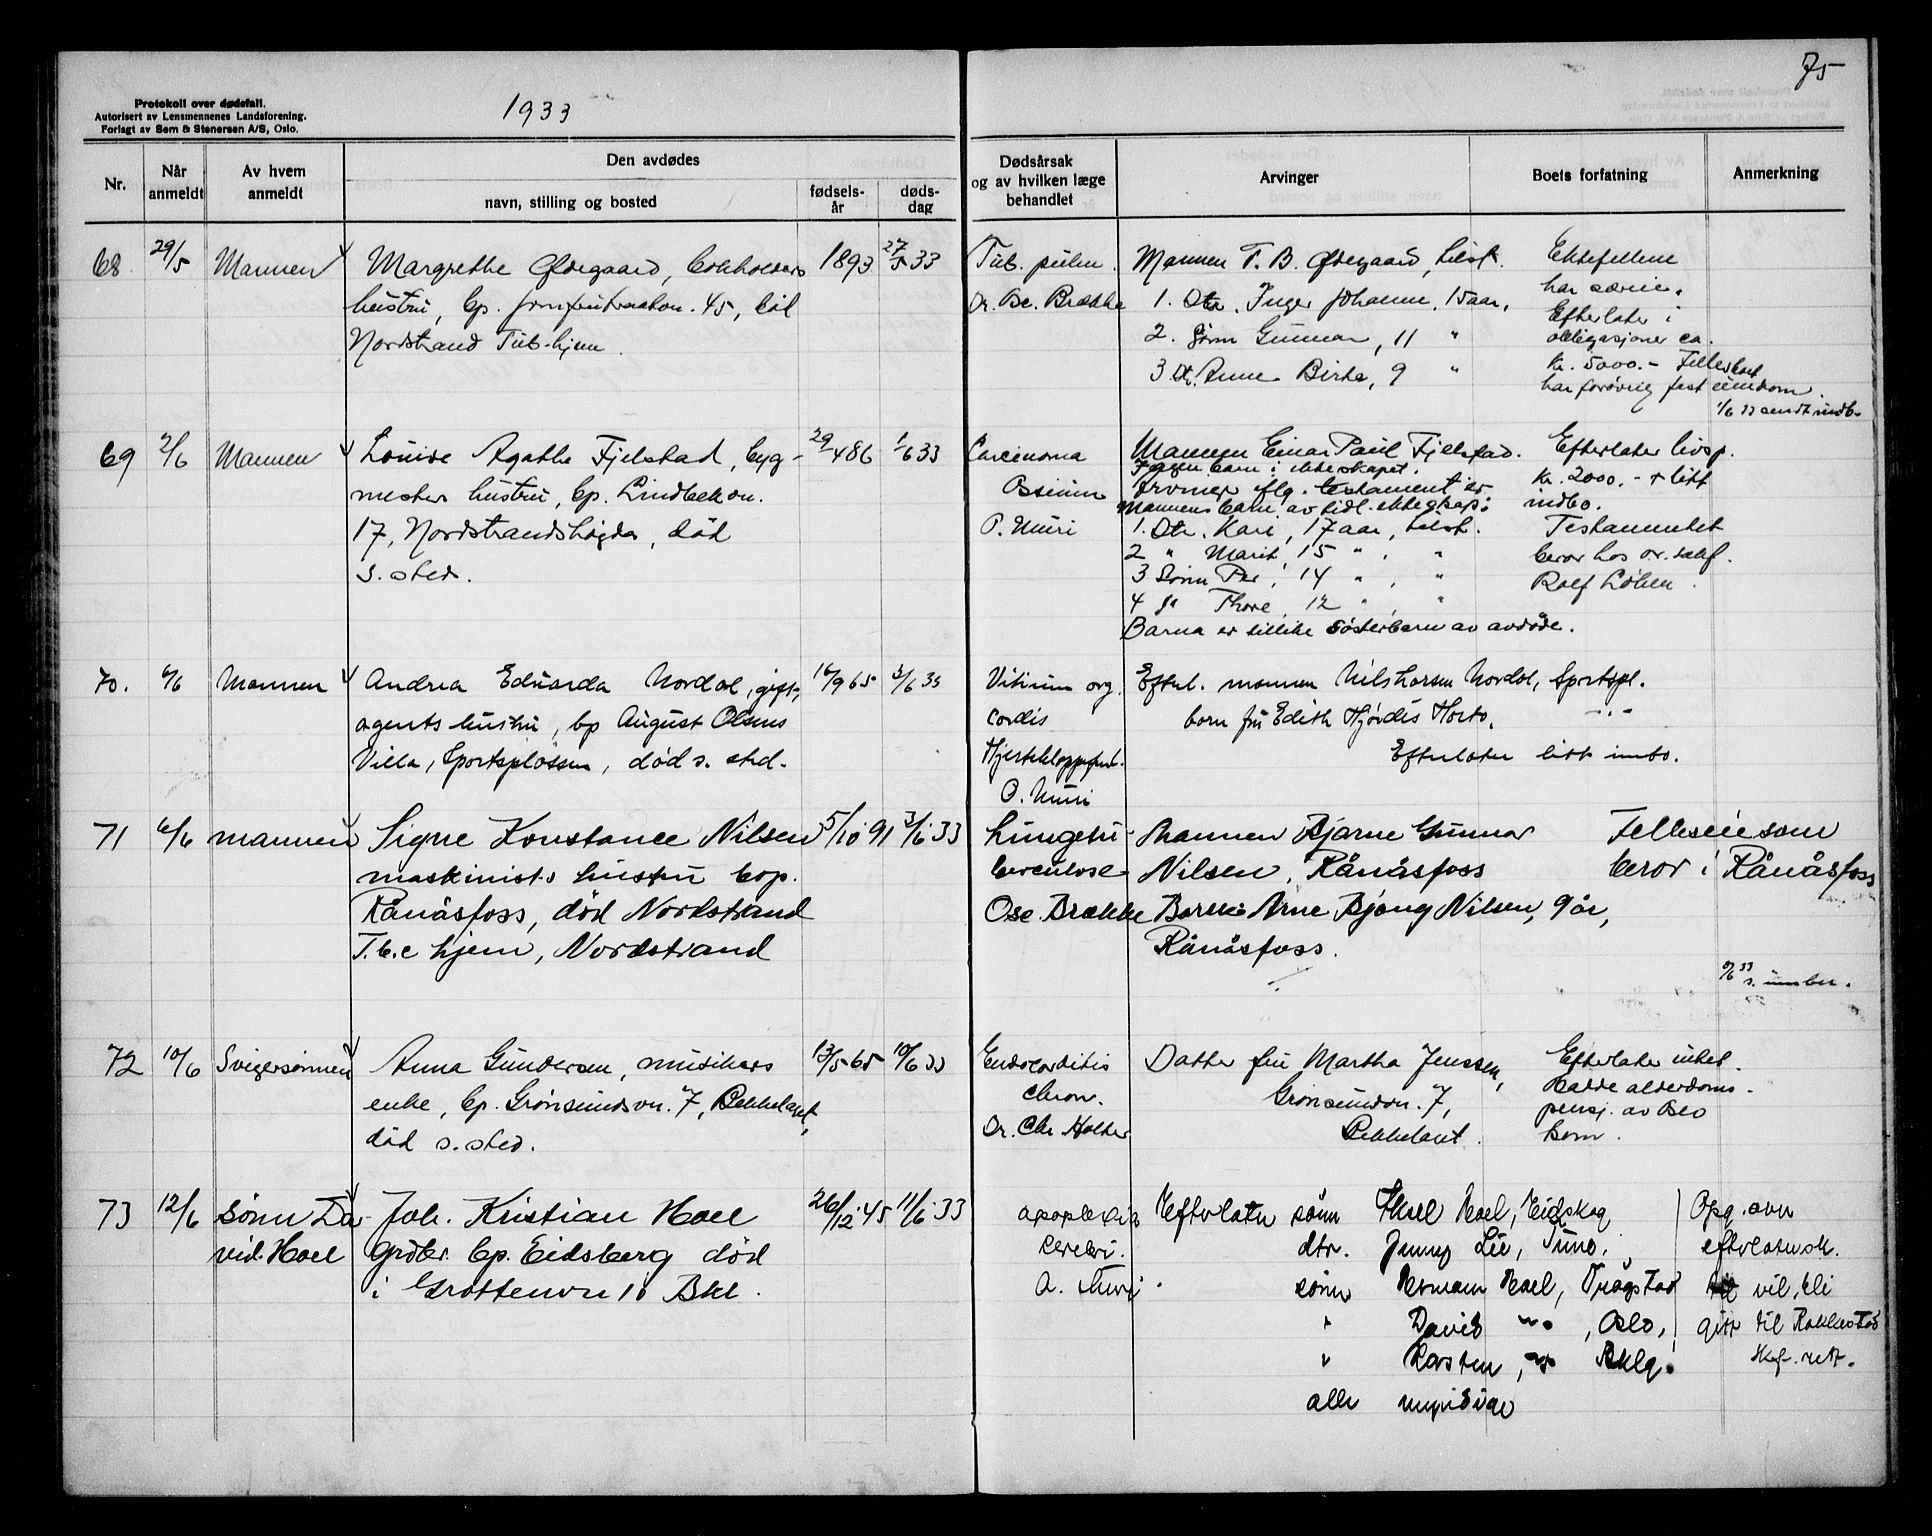 75
Protokoll over dødsfall.
Autorisert av Lensmennenes Landsforening.
Forlagt av Sem & Stenersen A/S, Oslo.
1933
Nr.
Når anmeldt
Av hvem anmeldt
Den avdødes
navn, stilling og bosted
fødsels-år
døds-dag
Dødsårsak og av hvilken læge behandlet
Arvinger
Boets forfatning
Anmerkning
68 29/5 Mannen Margrethe Ødegaard, bokholders 1893 27/5 33
hustru, bp. 45, død
Nordstrand Tub.hjem
Tub. pulm.
Dr. Brække
Mannen T. B. Ødegaard, selst.
1. Dtr. Inger Johanne, 15 aar,
2. Sønn Gunnar, 11 "
3 Dt. Anne Birte, 9 "
Ektefellene
har særeie.
Efterlater i
obligasjoner ca.
Kr. 5000.- Fellesboet
har forøvrig fast eiendom.
1/6 33 sendt indb.
69 2/6 Mannen Louise Agathe Fjelstad, byg-
29/4 86 1/6 33
mesters hustru, bp. Lindbekvn.
17, Nordstrandshøgda, død
s. sted.
Carcinoma
Ossium
P. Muri
Mannen Einar Paul Fjelstad.
Ingen barn i ekteskapet.
Arvinger iflg. testament er
Mannens barn av tidl. ekteskap:
1. Dtr. Kari, 17 aar, selst.
2 " Marit, 15 " , "
3 Sønn Per, 14 " , "
4 Do Thore, 12 " , "
Barna er tillike søsterbarn av avdøde.
Efterlater livsp.
Kr. 2000.- + litt
indbo.
Testamentet
beror hos or. sakf.
Rolf
70. 6/6 Mannen Andrea Eduarda Nordal, gift,
16/9 65 5/6 33
agents hustru, bp August Olsens
Villa, Sportsplassen, død s. sted.
Vitium org.
cordis
Hjerteklappfeil.
O. Muri
Efterl. mannen Nils Larsen Nordal, Sportspl.
barn fru Edith Hjørdis Horts, -"-
Efterlater litt innbo.
71 6/6 mannen Signe Konstance Nilsen 5/10 91 3/6 33
maskinists hustru bop.
Rånåsfoss, død Nordstrand
T.b.c hjem, Nordstrand
Lungetu-
berculose
Ose. Brække
Mannen Bjarne Gunnar
Nilsen, Rånåsfoss
Barn: Arne Bjong Nilsen, 9 år,
Rånåsfoss.
Felleseie som
beror i Rånåsfoss
72 10/6 Svigersønnen Anna Gundersen, musikers 13/5 65 10/6 33
enke, bp. Grønsundvn. 7, Bekkelaget,
død s. sted.
Endocarditis
chron.
Dr. Chr Holter
Datter fru Martha Jenssen,
Grønsundvn. 7,
Bekkelaget.
Efterlater intet.
Hadde alderdoms-
pensj. av Oslo
kom.
73 12/6 sønn Da- Joh. Kristian Hoel 26/12 45 11/6 33
vid Hoel grdbr. bp. Eidsberg død
i Grottenvn 10 Bkl.
apoplexia
cerebri.
A. Muri
Efterlater sønn Aksel Hoel, Eidskog
dtr. Jenny Lie, Tune,
sønn Herman Hoel, Trøgstad
" David " , Oslo,
" Karsten, " Bklg.
alle myndige
Opg. over
efterlatensk.
vil bli
gitt til Rakkestad
skif.rett.